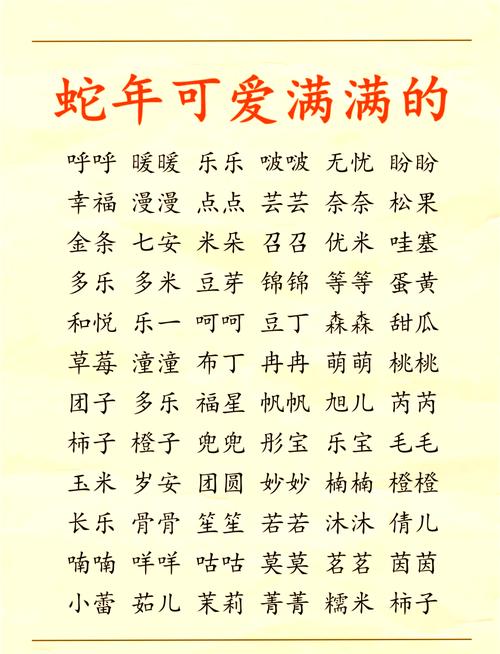 蛇年可爱满满的
呼呼 暖暖 乐乐 啵啵 无忧 盼盼
幸福 漫漫 点点 芸芸 奈奈 松果
金条 七安 米朵 召召 优米 哇塞
多乐 多米 豆芽 锦锦 等等 蛋黄
和悦 乐一 呵呵 豆丁 森森 甜瓜
草莓 潼潼 布丁 冉冉 萌萌 桃桃
团子 多乐 福星 帆帆 旭儿 芮芮
柿子 橙子 兜兜 彤宝 乐宝 毛毛
玉米 岁安 团圆 妙妙 楠楠 橙橙
长乐 骨骨 笙笙 若若 沐沐 倩儿
喃喃 咩咩 咕咕 莫莫 茗茗 茵茵
小蕾 茹儿 茉莉 菁菁 糯米 柿子